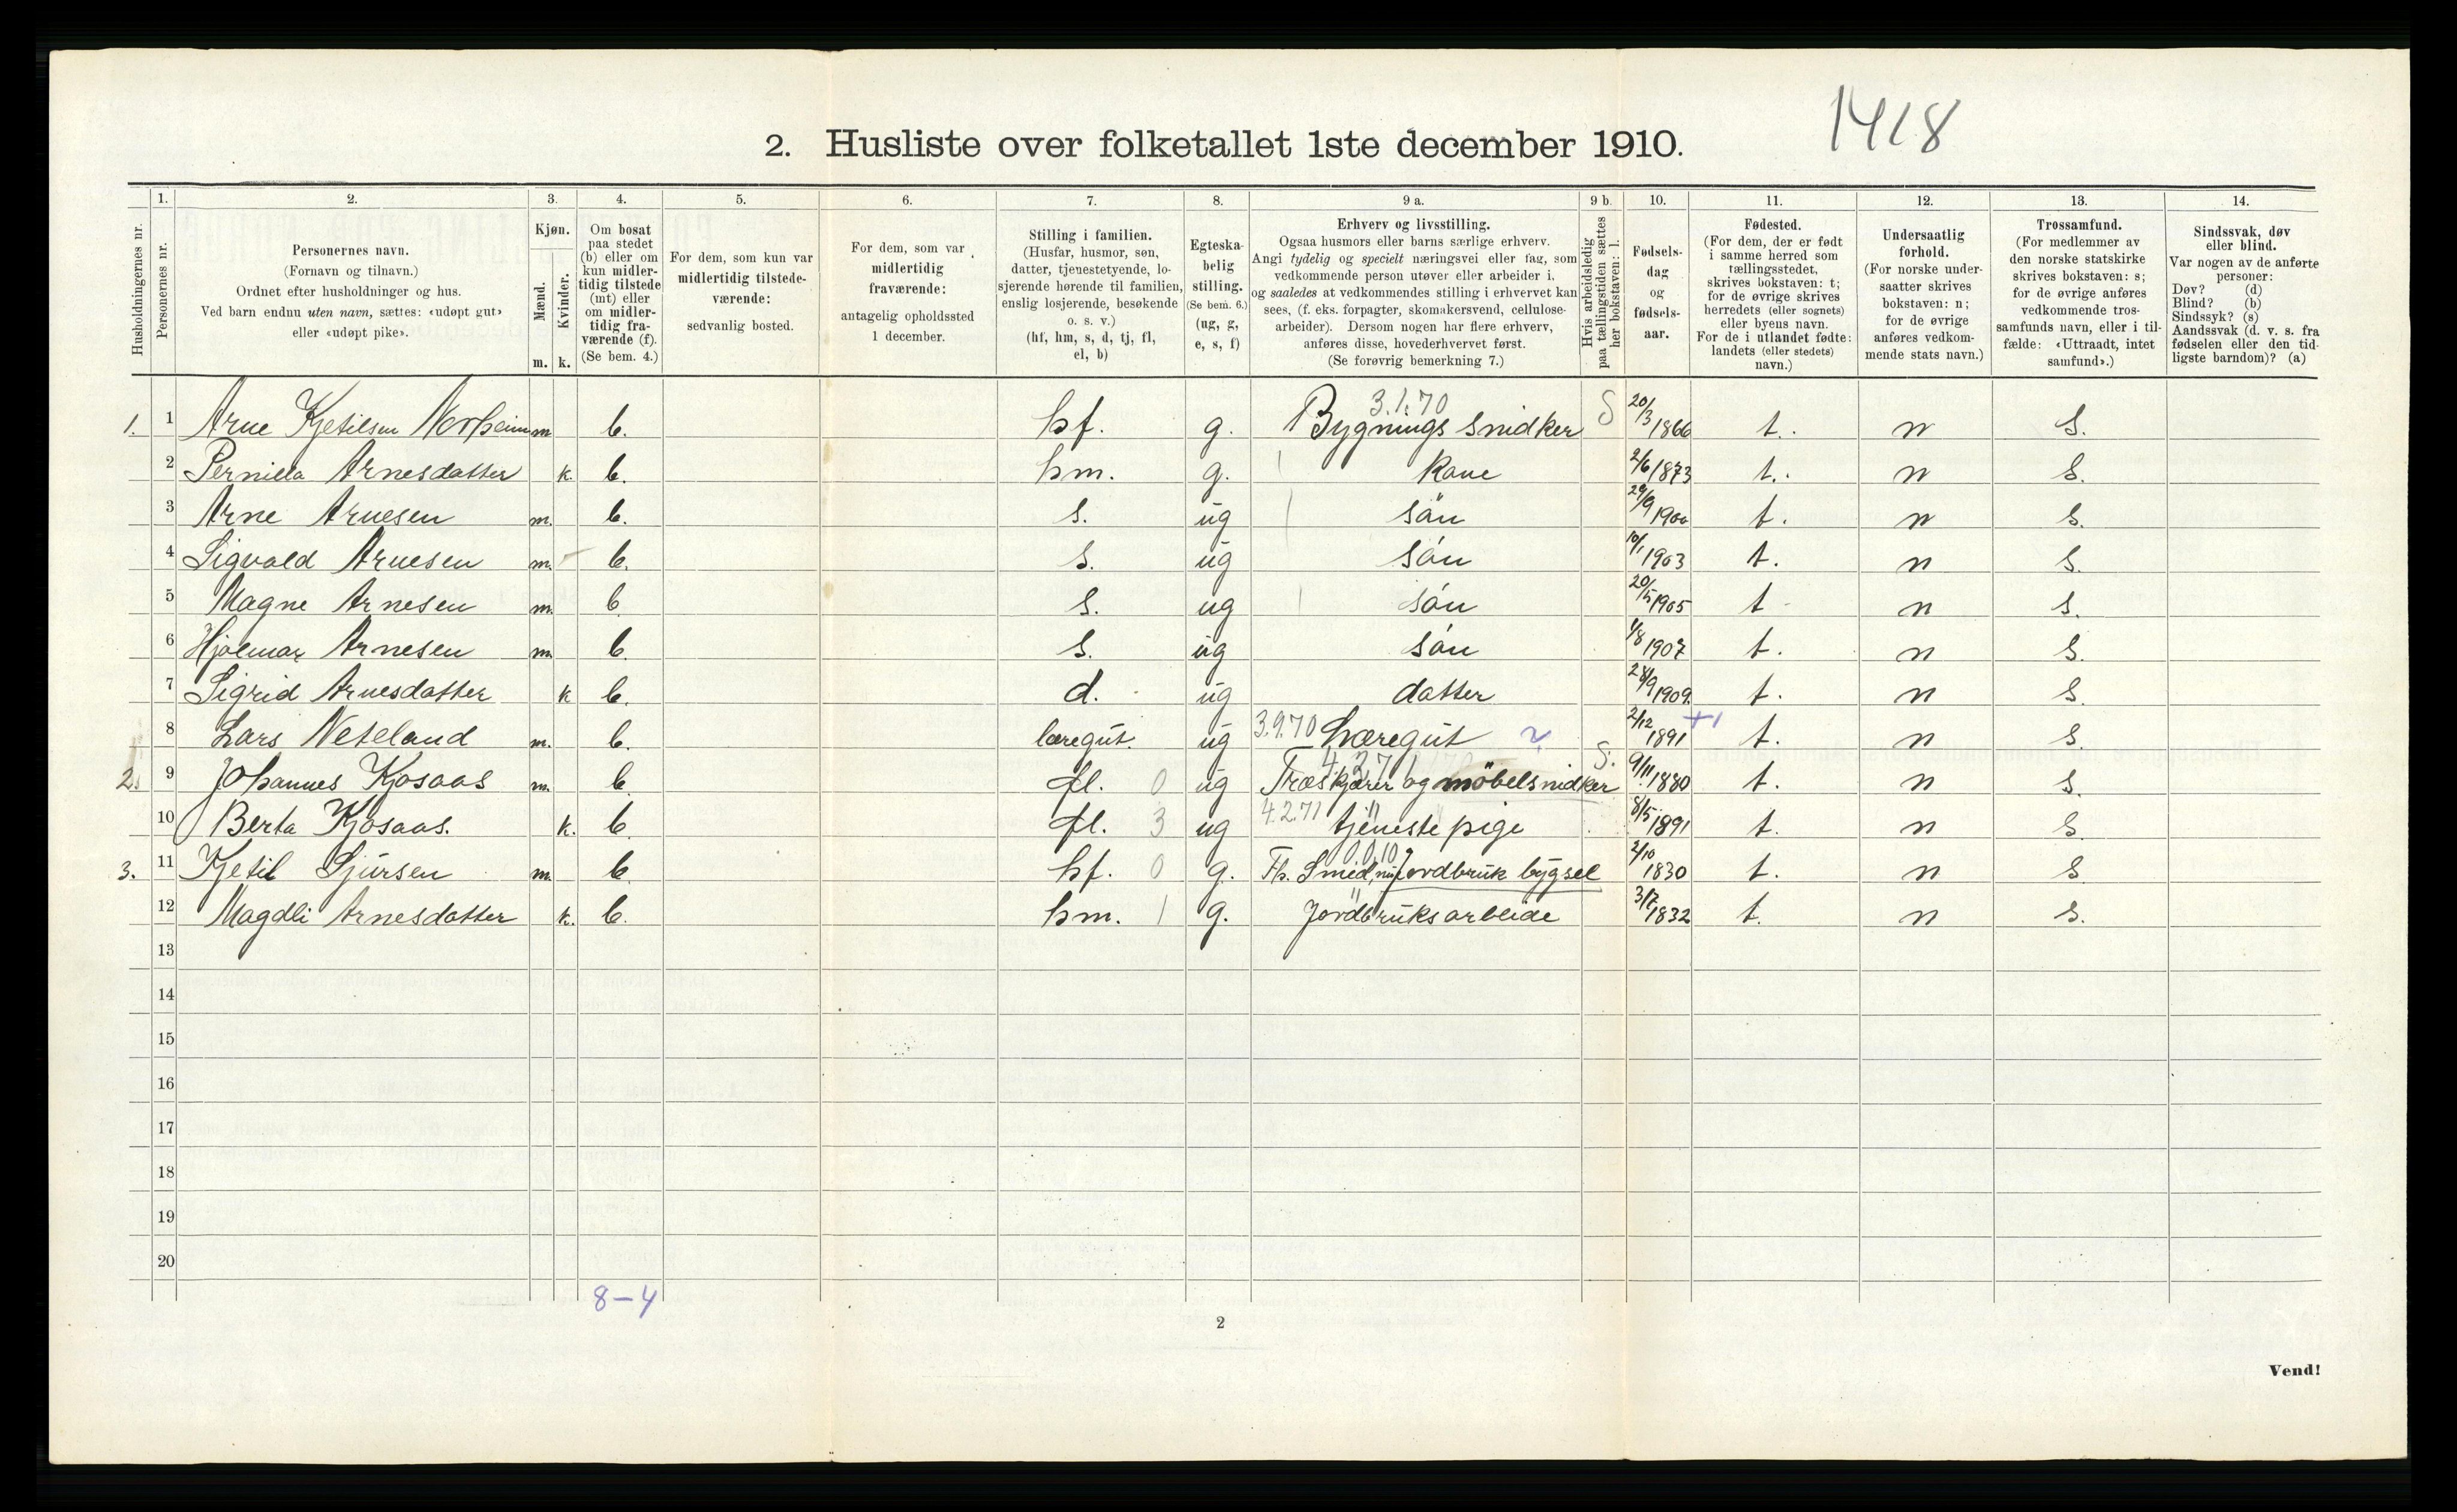 1418
2. Husliste over folketallet 1ste december 1910.
Husholdningernes nr.
1.
Personernes nr.
2.
Personernes navn.
(Fornavn og tilnavn.)
Ordnet efter husholdninger og hus.
Ved barn endnu uten navn, sættes: «udøpt gut»
eller «udøpt pike».
3.
Kjøn.
Mænd.
Kvinder.
m. k.
4.
Om bosat
paa stedet
(b) eller om
kun midler-
tidig tilstede
(mt) eller
om midler-
tidig fra-
værende (f).
(Se bem. 4.)
5.
For dem, som kun var
midlertidig tilstede-
værende:
sedvanlig bosted.
6.
For dem, som var
midlertidig
fraværende:
antagelig opholdssted
1 december.
7.
Stilling i familien.
(Husfar, husmor, søn,
datter, tjenestetyende, lo-
sjerende hørende til familien,
enslig losjerende, besøkende
o. s. v.)
(hf, hm, s, d, tj, fl,
el, b)
8.
Egteska-
belig
stilling.
(Se bem. 6.)
(ug, g,
e, s, f)
9 a.
Erhverv og livsstilling.
Ogsaa husmors eller barns særlige erhverv.
Angi tydelig og specielt næringsvei eller fag, som
vedkommende person utøver eller arbeider i,
og saaledes at vedkommendes stilling i erhvervet kan
sees, (f. eks. forpagter, skomakersvend, cellulose-
arbeider). Dersom nogen har flere erhverv,
anføres disse, hovederhvervet først.
(Se forøvrig bemerkning 7.)
9 b.
Hvis arbeidsledig
paa tællingstiden sættes
her bokstaven: l.
10.
Fødsels-
dag
og
fødsels-
aar.
11.
Fødested.
(For dem, der er født
i samme herred som
tællingsstedet,
skrives bokstaven: t;
for de øvrige skrives
herredets (eller sognets)
eller byens navn.
For de i utlandet fødte:
landets (eller stedets)
navn.)
12.
Undersaatlig
forhold.
(For norske under-
saatter skrives
bokstaven: n;
for de øvrige
anføres vedkom-
mende stats navn.)
13.
Trossamfund.
(For medlemmer av
den norske statskirke
skrives bokstaven: s;
for de øvrige anføres
vedkommende tros-
samfunds navn, eller i til-
fælde: «Uttraadt, intet
samfund».)
14.
Sindssvak, døv
eller blind.
Var nogen av de anførte
personer:
Døv? (d)
Blind? (b)
Sindssyk? (s)
Aandssvak (d. v. s. fra
fødselen eller den tid-
ligste barndom)? (a)
3.1.70
1. 1 Arne Kjetilsen Norheim m b. hf. g. Bygnings snidker S 20/3 1866 t. n s.
2 Pernilla Arnesdatter k. b. hm. g. Kone 2/6 1873 t. n s.
3 Arne Arnesen m. b. s. ug søn 29/9 1900 t. n s.
4 Sigvald Arnesen m. b. s. ug søn 10/1 1903 t. n s.
5 Magne Arnesen m. b s. ug søn 20/5 1905 t n s.
6 Hjalmar Arnesen m. b. s. ug søn 1/8 1907 t. n s.
7 Sigrid Arnesdatter k b. d. ug datter 28/9 1909. t. n s.
8 Lars Neteland m. b. læregut. ug 3.9.70 Læregut 2/12 1891 +1 t. n s.
2. 9 Johannes Kjosaas m. b. fl. 0 ug Træskjærer og möbelsnidker S. 9/11 1880 t. n s.
10 Berta Kjosaas. k. b. fl. 3 ug 4.2.71 tjeneste pige 8/5 1891 t. n s.
0.0.10
3. 11 Kjetil Sjursen m. b. hf. 0 g. Fh. Smed, nu Jordbruk bygsel 2/10 1830 t. n s
12 Magdli Arnesdatter k. b. hm. 1 g. Jordbruksarbeide 3/7 1832 t. n s.
13
14
15
16
17
18
19
20
8-4
2
Vend!